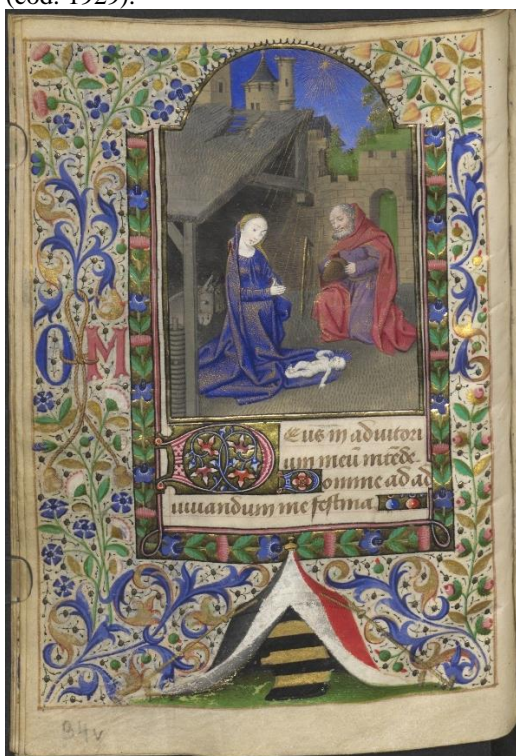 (cod. 1929).
O M
Deus in adiutori
um meū intēde
Domine ad ad
iuuandum me festina
94v